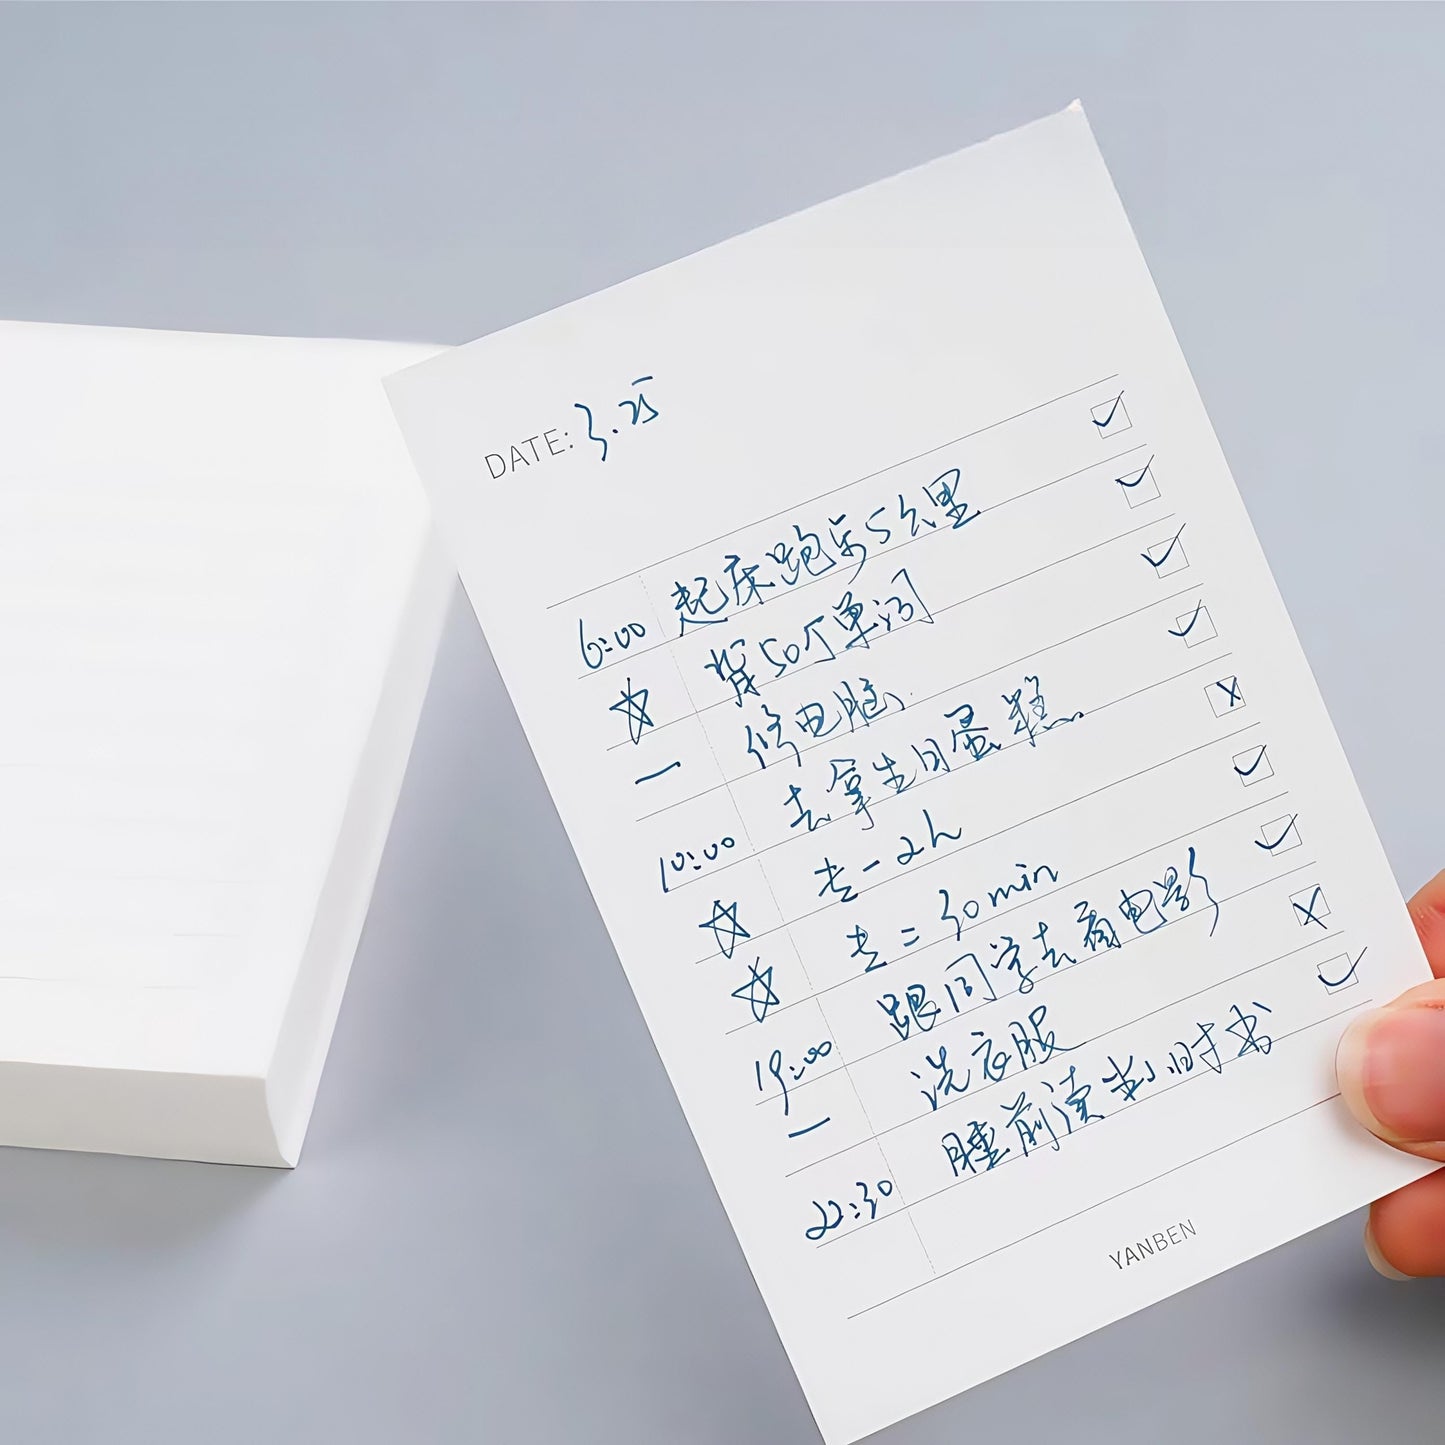 DATE: 3.25
6:00 起床跑步5公里
☆ 背50个单词
— 修电脑
10:00 去拿生日蛋糕
☆ 专一 2h
☆ 专二 30min
19:00 跟同学去看电影
— 洗衣服
22:30 睡前读半小时书
YANBEN